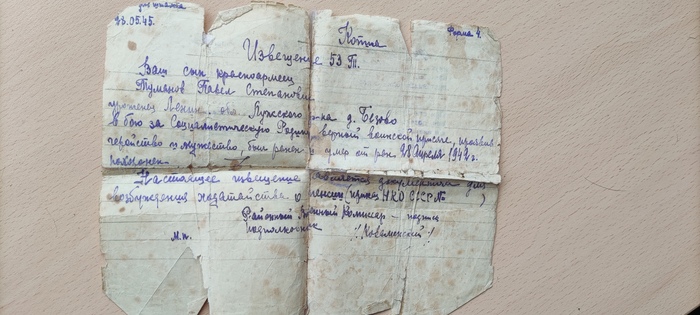 23.05.45.
Форма 4.
Копия
Извещение 53 т.
Ваш сын красноармеец
Туманов Павел Степанович
уроженец Ленин. обл. Лужского р-на д.
в бою за Социалистическую Родину, верный воинской присяге, проявив
геройство и мужество, был ранен и умер от ран 28 апреля 1942 г.
похоронен
Настоящее извещение является документом для
возбуждения ходатайства о пенсии (приказ НКО СССР № )
Районный Военный Комиссар – подпись
Подполковник
М.п.